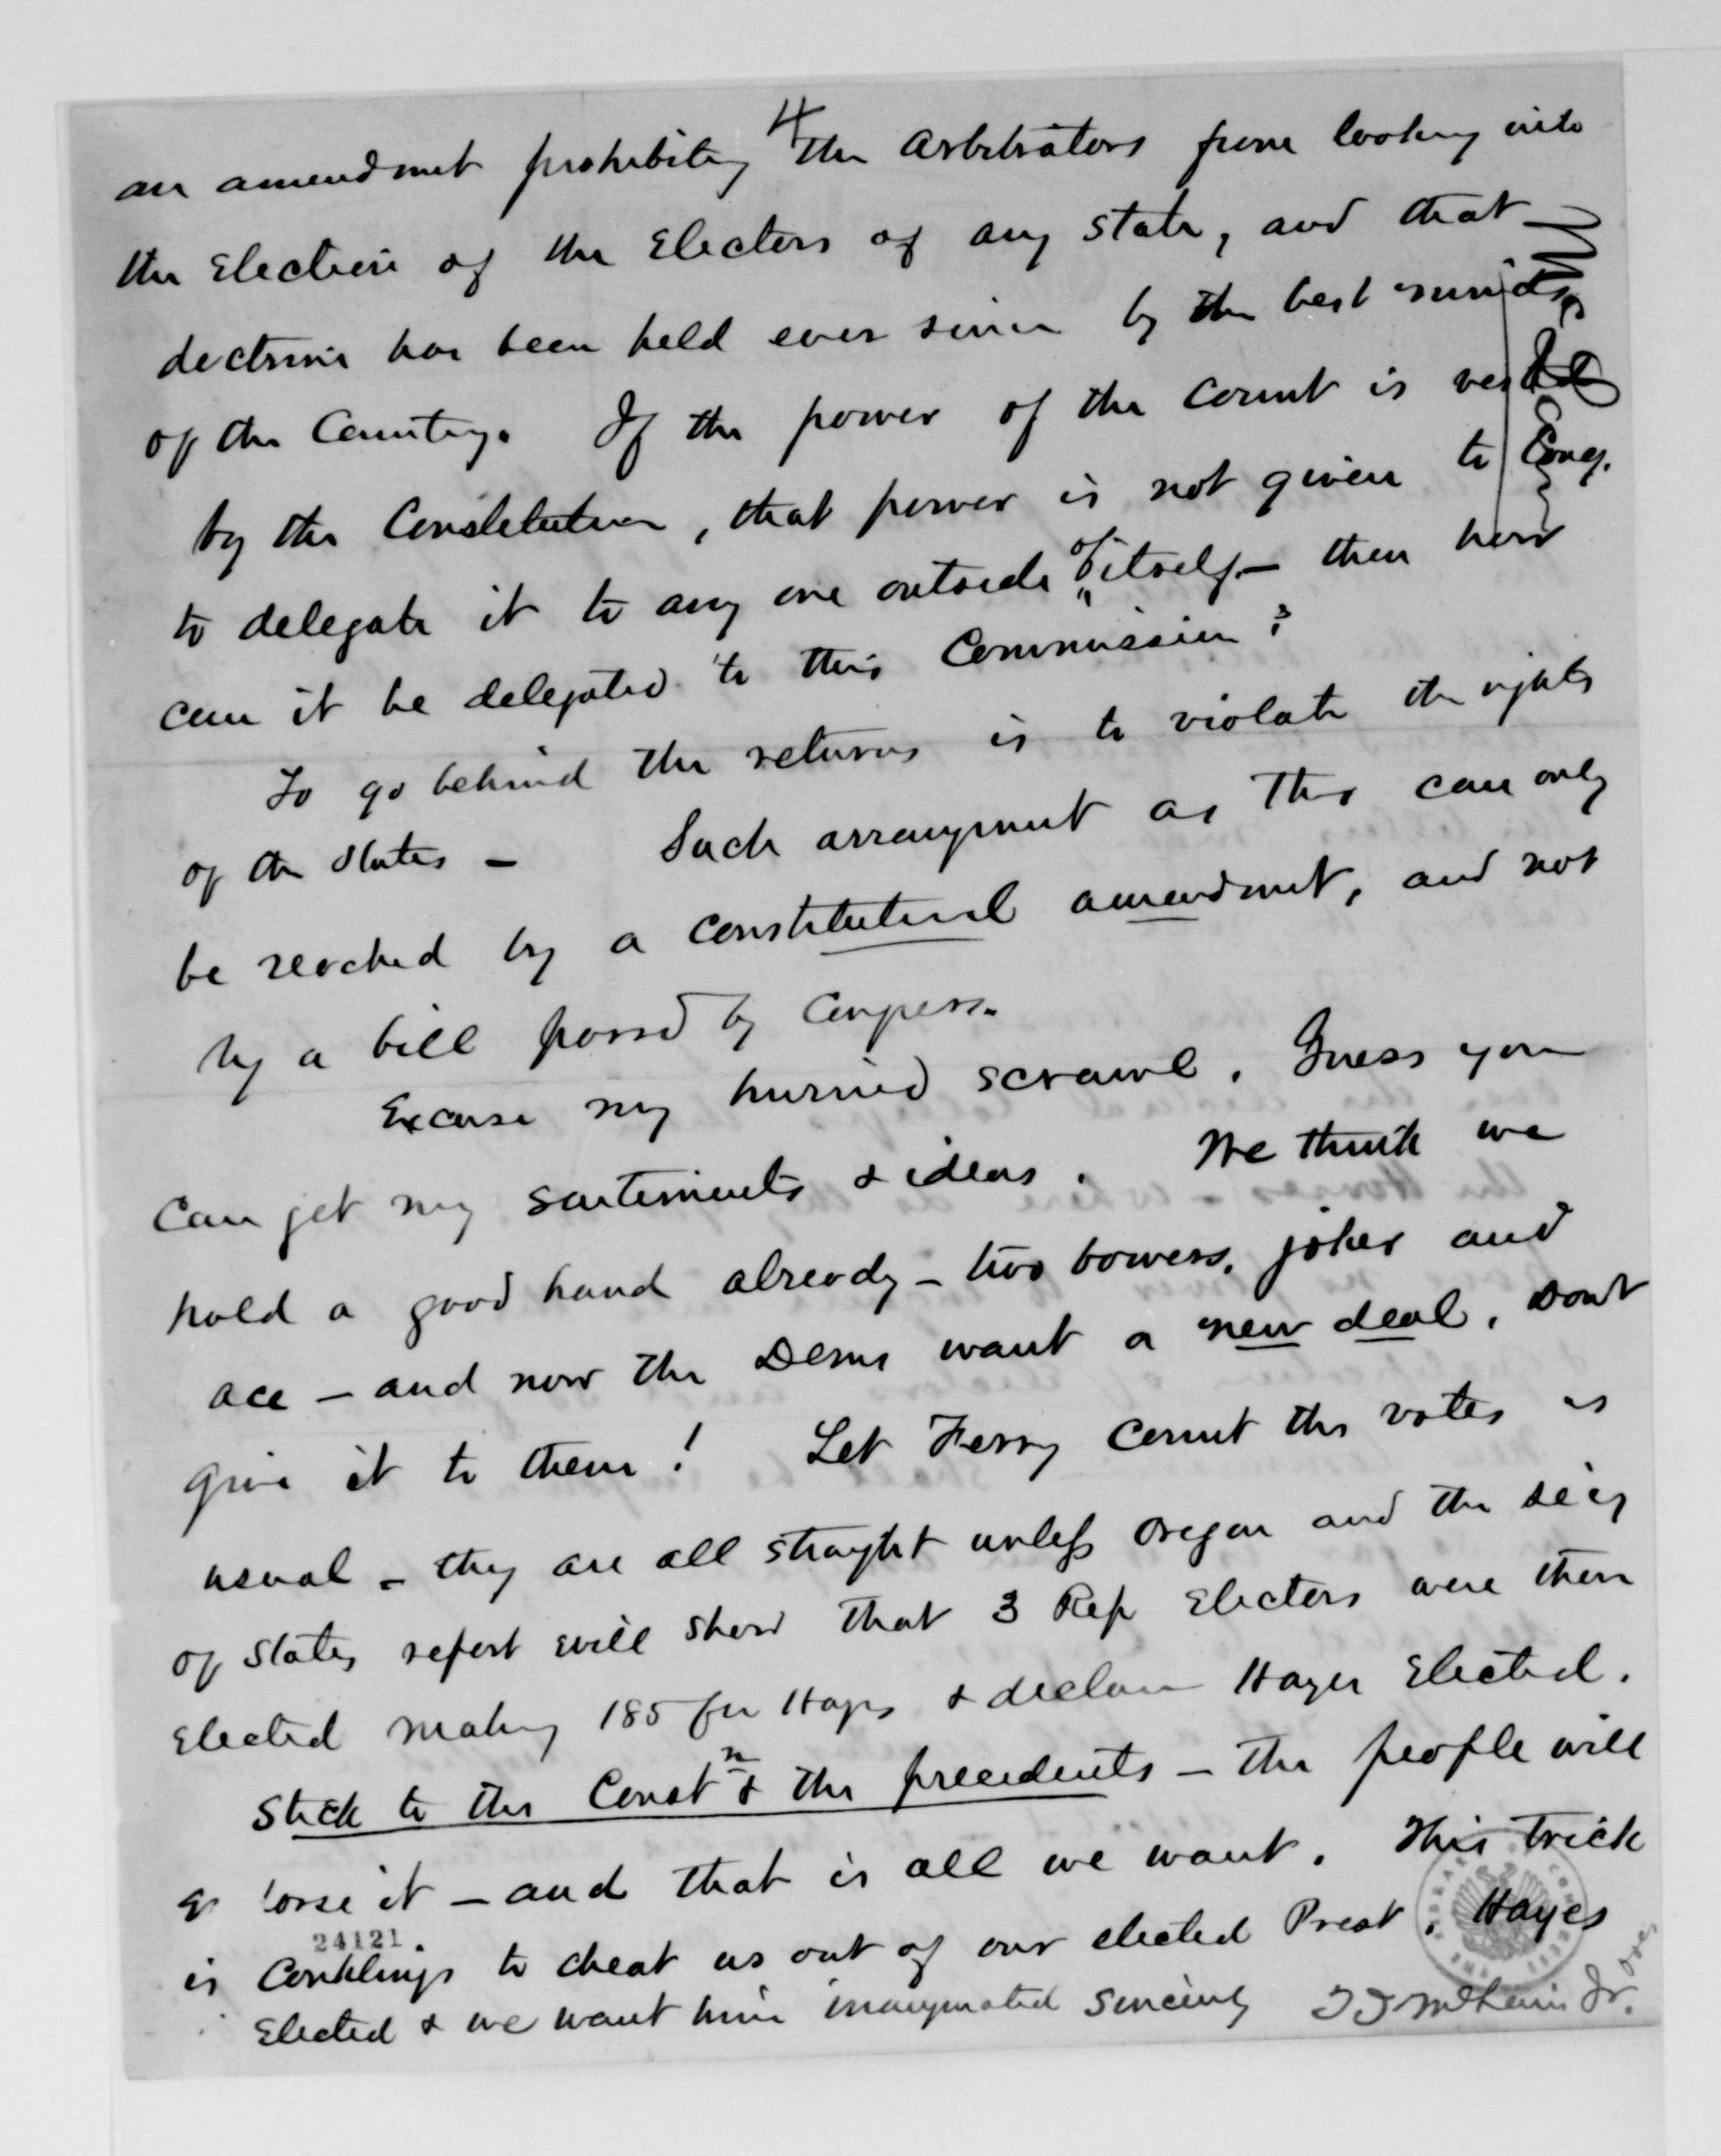 4
an amendment prohibiting the arbitrators from looking into
the Election of the Electors of any State, and that
doctrine has been held ever since by the best minds
of the Country. If the power of the Count is vested
by the Constitution, that power is not given to Cong.
to delegate it to any one outside of itself — then how
can it be delegated to this Commission?
To go behind the returns is to violate the rights
of the States — Such arrangement as this can only
be reached by a constitutional amendment, and not
by a bill passed by Congress.
Excuse my hurried scrawl. Guess you
can get my sentiments & ideas. We think we
hold a good hand already — two bowers, joker and
ace — and now the Dems want a new deal. Dont
give it to them! Let Ferry count the votes as
usual — they are all straight unless Oregon and the Secy
of States report will show that 3 Rep Electors were then
elected making 185 for Hayes & declare Hayes Elected.
Stick to the Constn & the precedents — the people will
it — and that is all we want. This trick
24121.
is Conklings to cheat us out of our elected Prest. Hayes
Elected & we want him inaugurated Sincerely Jr.
over